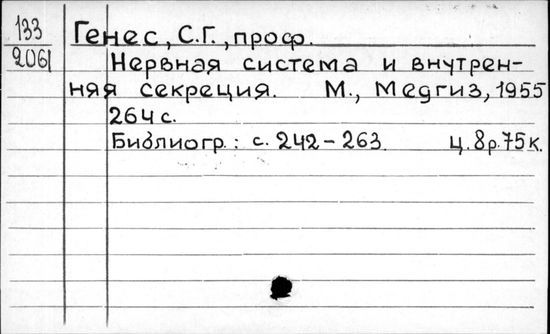 133
2061
Генес, С.Г., проф.
Нервная система и внутрен-
няя секреция. М., Медгиз, 1955
264 с.
Библиогр.: с. 242-263. ц. 8р.75к.